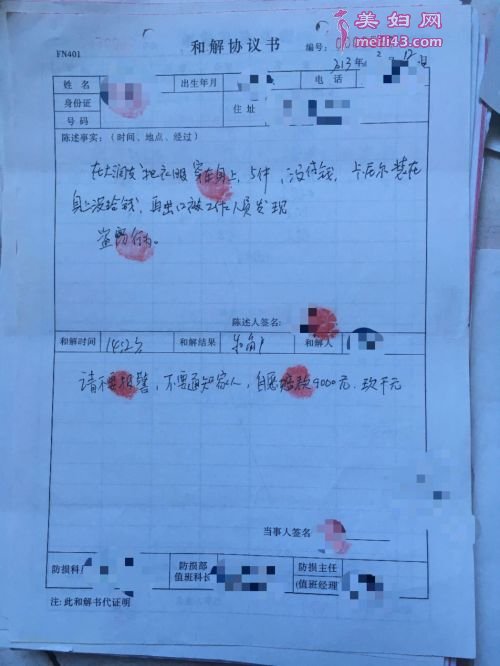 美妇网
meili43.com
FN401
和解协议书
编号:
213年 2
姓名
出生年月
电话
身份证
号码
住址
陈述事实:(时间、地点、经过)
在大润发把衣服穿在身上,5件,没付钱,卡居尔装在
身上没给钱,再出口被工作人员发现
盗窃行为。
陈述人签名:
和解时间
和解结果
和解人
请不要报警,不要通知家人,自愿赔款9000元.玖千元
当事人签名
防损科
防损部
值班科长
防损主任
(值班经理)
注:此和解书代证明